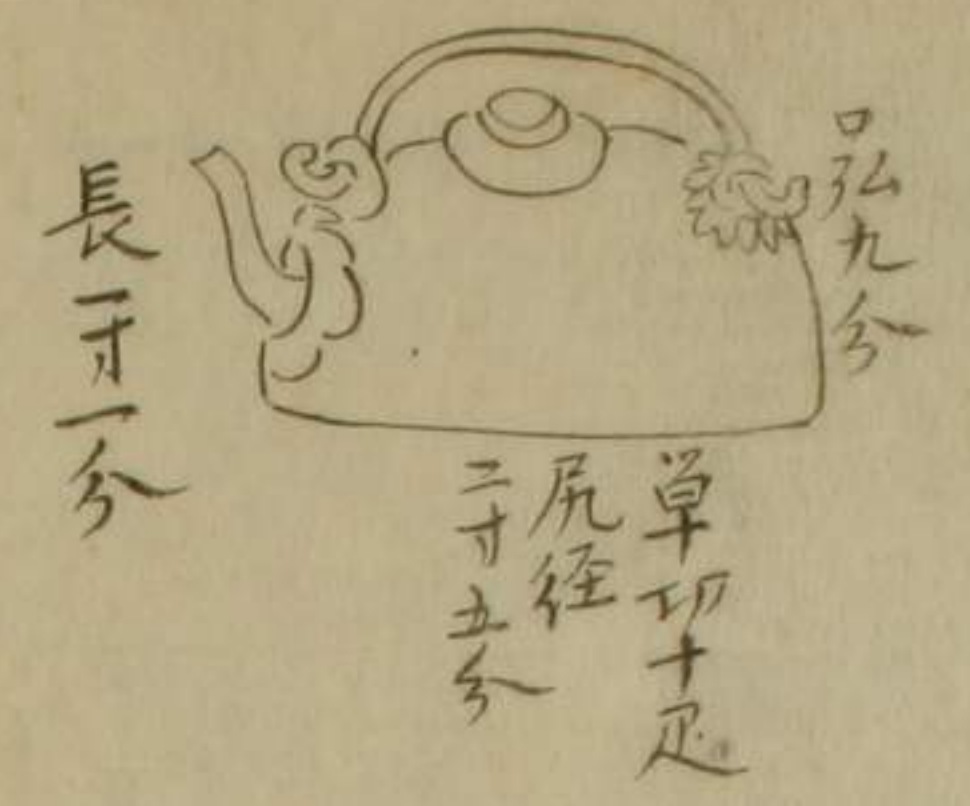 口弘九分
単功十疋
尻径
二寸五分
長一寸一分